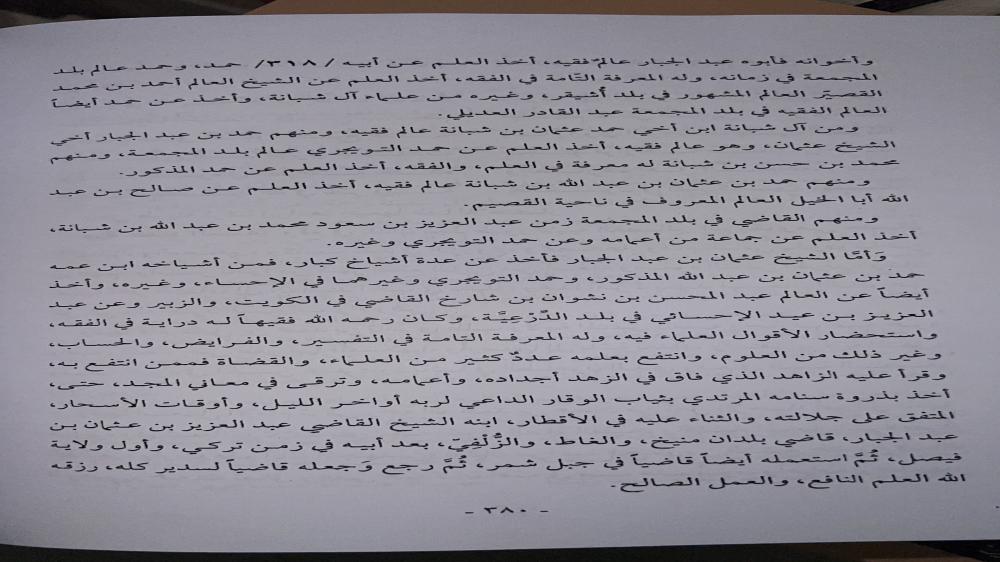 وأخوانه فأبوه عبد الجبار عالمٌ فقيه، أخذ العلم عن أبيه / ٣١٨/ حمد، وحمد عالم بلد
المجمعة في زمانه، وله المعرفة التّامة في الفقه، أخذ العلم عن الشيخ العالم أحمد بن محمد
القصيّر العالم المشهور في بلد أُشيقر، وغيره من علماء آل شبانة، وأخذ عن حمد أيضاً
العالم الفقيه في بلد المجمعة عبد القادر العديلي.
ومن آل شبانة ابن أخي حمد عثمان بن شبانة عالم فقيه، ومنهم حمد بن عبد الجبار أخي
الشيخ عثمان، وهو عالم فقيه، أخذ العلم عن حمد التويجري عالم بلد المجمعة، ومنهم
محمد بن حسن بن شبانة له معرفة في العلم، والفقه، أخذ العلم عن حمد المذكور.
ومنهم حمد بن عثمان بن عبد الله بن شبانة عالم فقيه، أخذ العلم عن صالح بن عبد
الله أبا الخيل العالم المعروف في ناحية القصيم.
ومنهم القاضي في بلد المجمعة زمن عبد العزيز بن سعود محمد بن عبد الله بن شبانة،
أخذ العلم عن جماعة من أعمامه وعن حمد التويجري وغيره.
وَأمّا الشيخ عثمان بن عبد الجبار فأخذ عن عدة أشياخ كبار، فمن أشياخه ابن عمه
حمد بن عثمان بن عبد الله المذكور، وحمد التويجري وغيرهما في الإحساء، وغيره، وأخذ
أيضاً عن العالم عبد المحسن بن نشوان بن شارخ القاضي في الكويت، والزبير وعن عبد
العزيز بن عيد الإحسائي في بلد الدّرْعِيَّة، وكان رحمه الله فقيهاً له دراية في الفقه،
واستحضار الأقوال العلماء فيه، وله المعرفة التامة في التفسير، والفرايض، والحساب،
وغير ذلك من العلوم، وانتفع بعلمه عددٌ كثير من العلماء، والقضاة فممن انتفع به،
وقرأ عليه الزاهد الذي فاق في الزهد أجداده، وأعمامه، وترقى في معاني المجد، حتى،
أخذ بذروة سنامه المرتدي بثياب الوقار الداعي لربه أواخر الليل، وأوقات الأسحار،
المتفق على جلالته، والثناء عليه في الأقطار، ابنه الشيخ القاضي عبد العزيز بن عثمان بن
عبد الجبار، قاضي بلدان منيخ، والغاط، والزُّلْفِيّ، بعد أبيه في زمن تركي، وأول ولاية
فيصل، ثُمَّ استعمله أيضاً قاضياً في جبل شمر، ثُمَّ رجع وَجعله قاضياً لسدير كله، رزقه
الله العلم النافع، والعمل الصالح.
- ٣٨٠ -